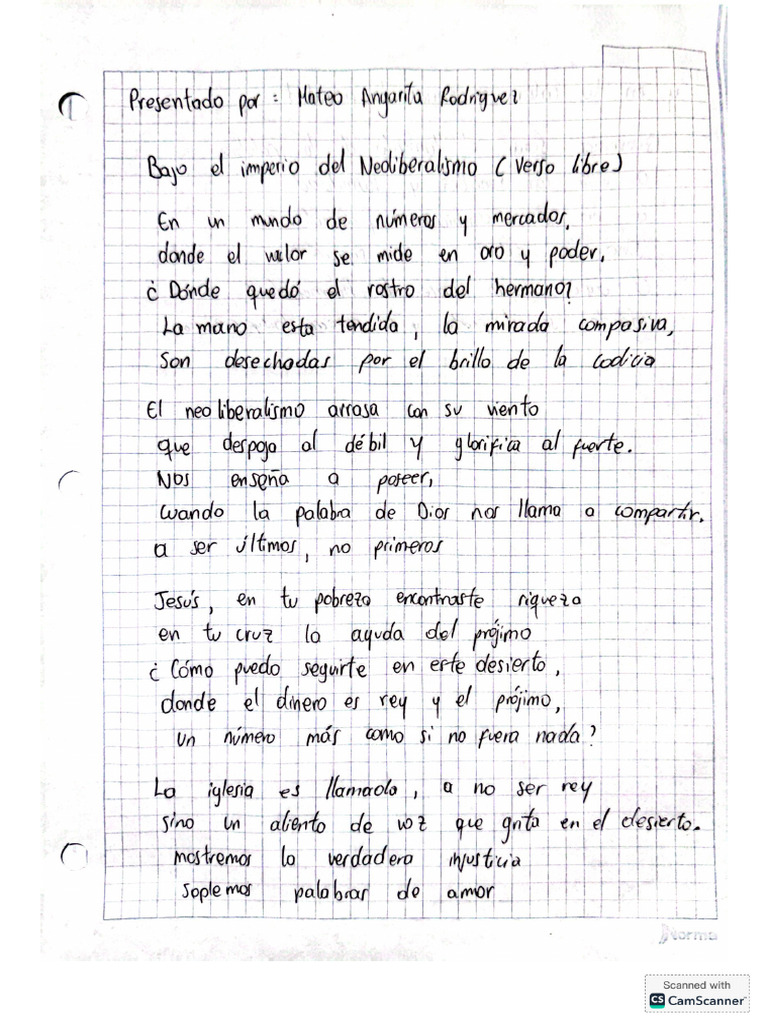 Presentado por : Mateo Angarita Rodriguez
Bajo el imperio del Neoliberalismo (Verso libre)
En un mundo de números y mercados,
donde el valor se mide en oro y poder,
¿Dónde quedó el rostro del hermano?
La mano esta tendida, la mirada compasiva,
Son desechadas por el brillo de la codicia
El neoliberalismo arrasa con su viento
que despoja al débil y glorifica al fuerte.
Nos enseña a poseer,
Cuando la palabra de Dios nos llama a compartir.
a ser últimos, no primeros
Jesús, en tu pobreza encontraste riqueza
en tu cruz la ayuda del prójimo
¿Cómo puedo seguirte en este desierto,
donde el dinero es rey y el prójimo,
un número más como si no fuera nada?
La iglesia es llamada, a no ser rey
sino un aliento de voz que grita en el desierto.
mostremos la verdadera injusticia
Soplemos palabras de amor
Norma
Scanned with
CS CamScanner